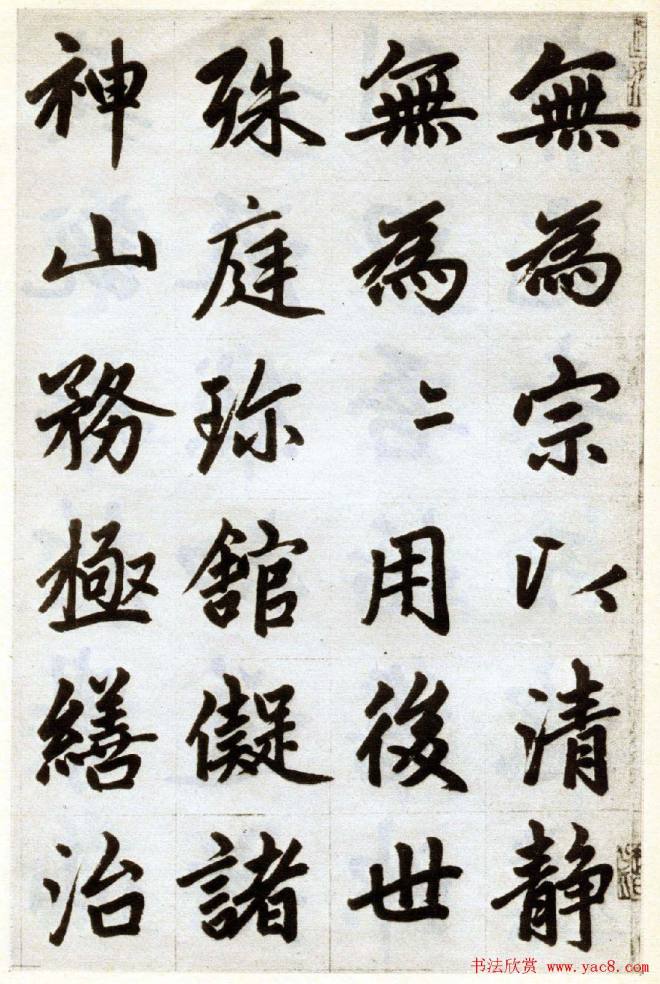 無為宗以清静
無為㆓用後世
殊庭珎舘儗諸
神山務極繕治
书法欣赏 www.yac8.com